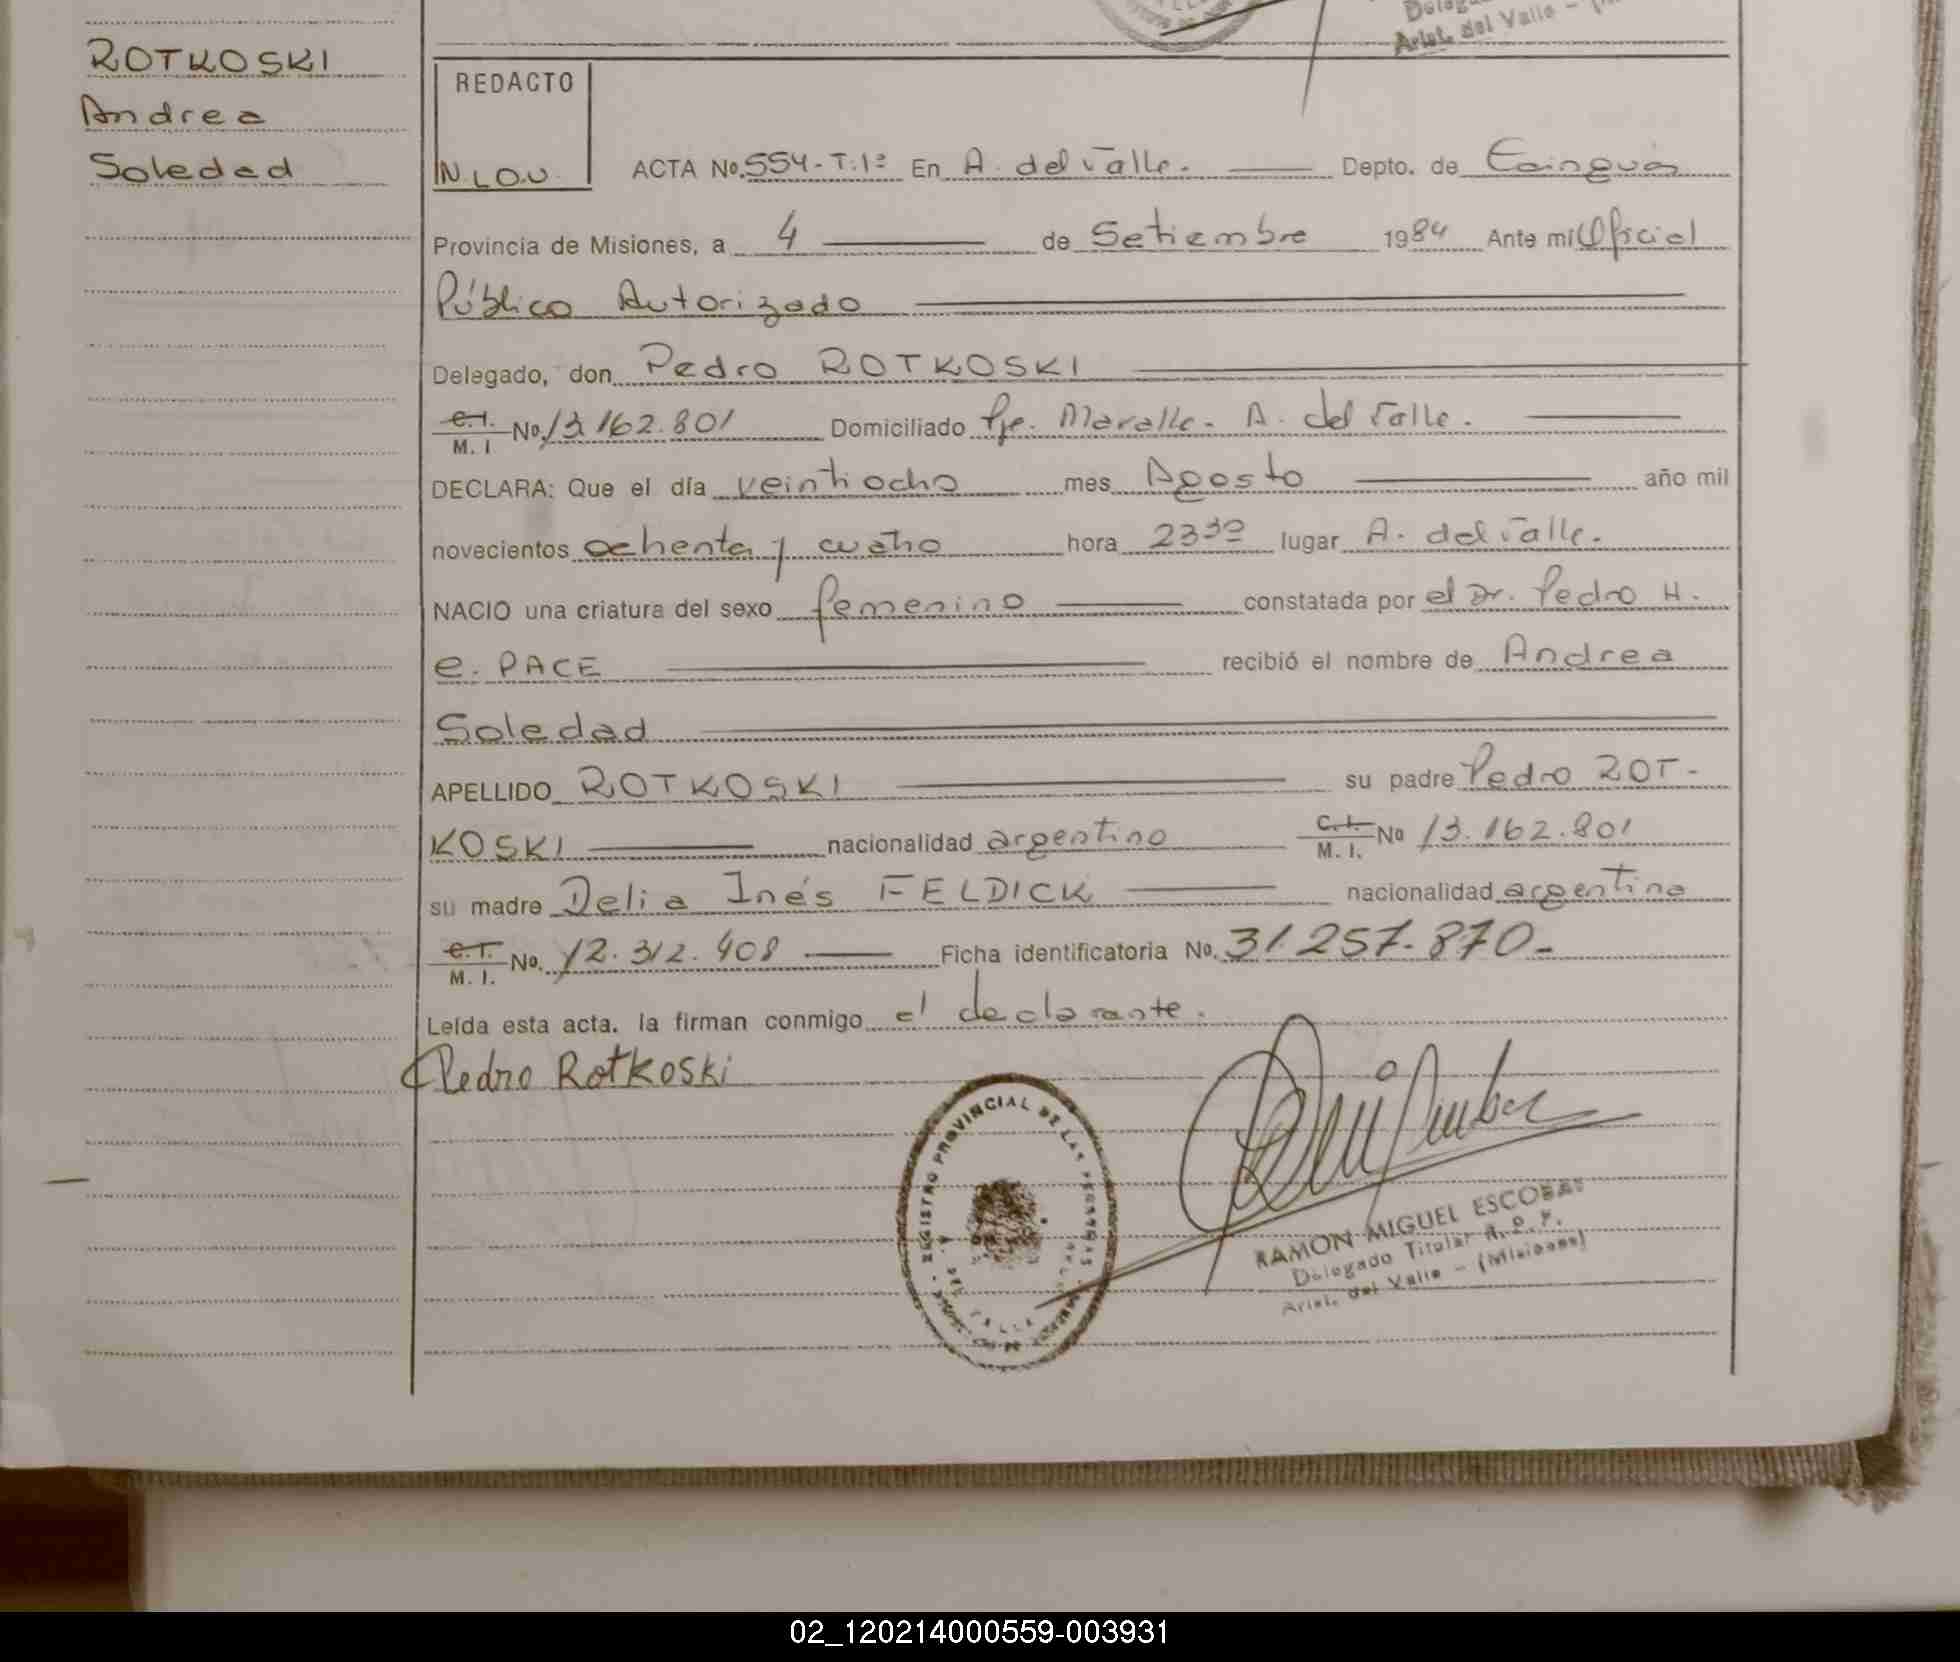 Arist. del Valle - (
ROTKOSKI
Andrea
Soledad
REDACTO
N.LO.U.
ACTA No. 554-T:1º En A. del Valle. Depto. de Cainguás
Provincia de Misiones, a 4 de Setiembre 1984 Ante mi Oficial
Público Autorizado
Delegado, don Pedro ROTKOSKI
C.I. M.I No. 13.162.801 Domiciliado Pje. Maralle. A. del Valle.
DECLARA: Que el día veintiocho mes Agosto año mil
novecientos ochenta y cuatro hora 23³⁰ lugar A. del Valle.
NACIO una criatura del sexo femenino constatada por el Dr. Pedro H.
e. PACE recibió el nombre de Andrea
Soledad
APELLIDO ROTKOSKI su padre Pedro ROT-
KOSKI nacionalidad argentino C.I. M.I. No 13.162.801
su madre Delia Inés FELDICK nacionalidad argentina
C.I. M.I. No. 12.312.408 Ficha identificatoria No. 31.257.870.-
Leída esta acta, la firman conmigo el declarante.
Pedro Rotkoski
REGISTRO PROVINCIAL DE LAS PERSONAS
DEL VALLE
RAMON MIGUEL ESCOBAR
Delegado Titular R.P.P.
Arist. del Valle - (Misiones)
02_120214000559-003931